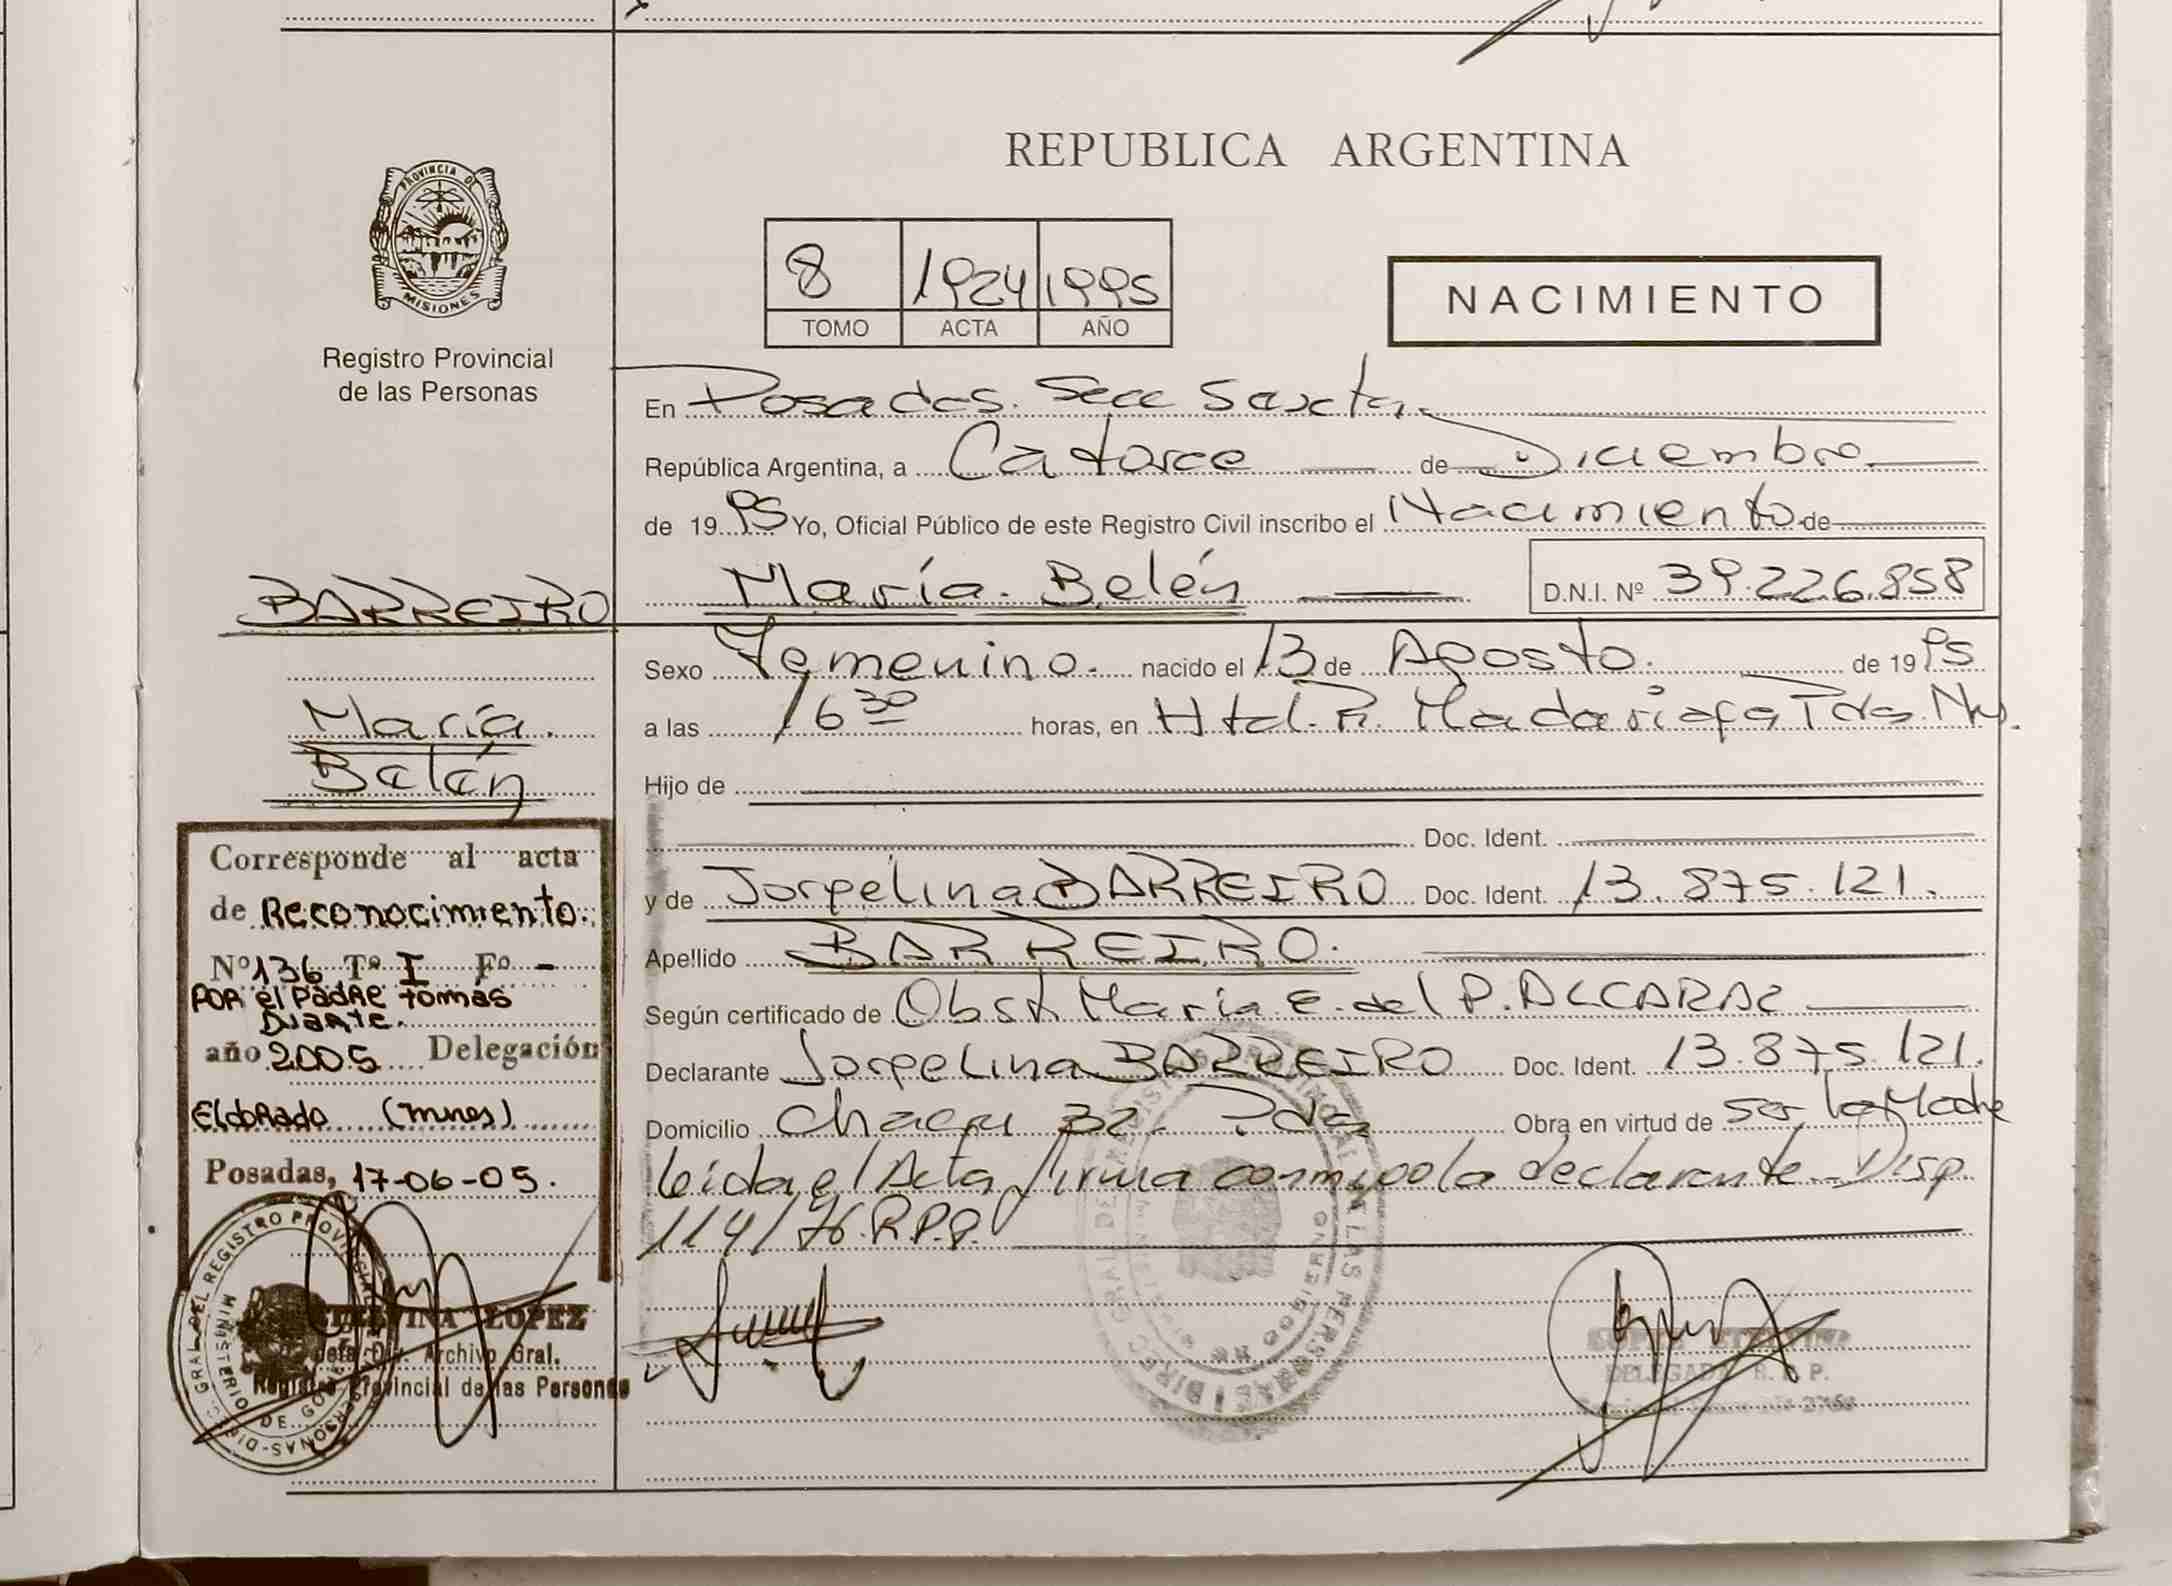 PROVINCIA DE
MISIONES
Registro Provincial
de las Personas
BARREIRO
María.
Belén
Corresponde al acta
de Reconocimiento.
Nº 136 Tº I Fº -
POR el PADRE Tomás
Duarte.
año 2005 Delegación
Eldorado (mnes)
Posadas, 17-06-05.
ETELVINA LOPEZ
Jefa Div. Archivo Gral.
Registro Provincial de las Personas
REPUBLICA ARGENTINA
8 1924 1995
TOMO ACTA AÑO
NACIMIENTO
En Posadas. Secc Sexta.
República Argentina, a Catorce de Diciembre
de 1995 Yo, Oficial Público de este Registro Civil inscribo el Nacimiento de
María Belén D.N.I. Nº 39.226.858
Sexo Femenino. nacido el 13 de Agosto. de 1995
a las 16 30 horas, en Htal. R. Madariaga Pdas. Mnes.
Hijo de
Doc. Ident.
y de Jorgelina BARREIRO Doc. Ident. 13.875.121.
Apellido BARREIRO.
Según certificado de Obst. María E. del P. ALCARAZ
Declarante Jorgelina BARREIRO Doc. Ident. 13.875.121.
Domicilio Chacra 32. Pdas Obra en virtud de ser la Madre
leida el Acta firma conmigo la declarante. Disp.
114/76.R.P.P.
LOPEZ ETELVINA
DELEGADA R. P. P.